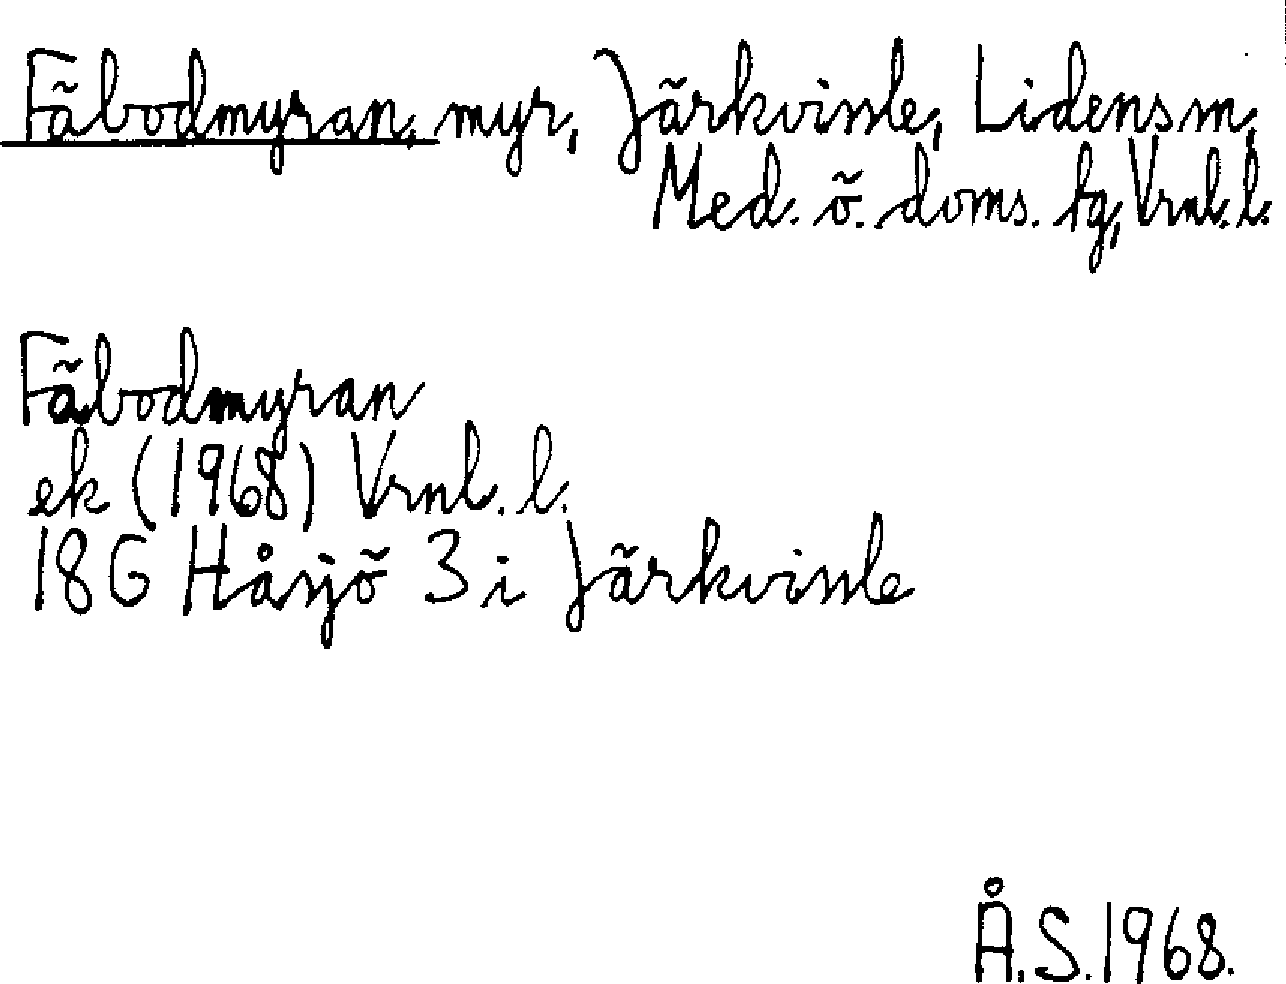 Fäbodmyran, myr, Järkvissle, Lidens sn,
Med. ö. doms. tg, Vrnl. l.
Fäbodmyran
ek (1968) Vrnl. l.
18G Håsjö 3 i Järkvissle
Å.S. 1968.